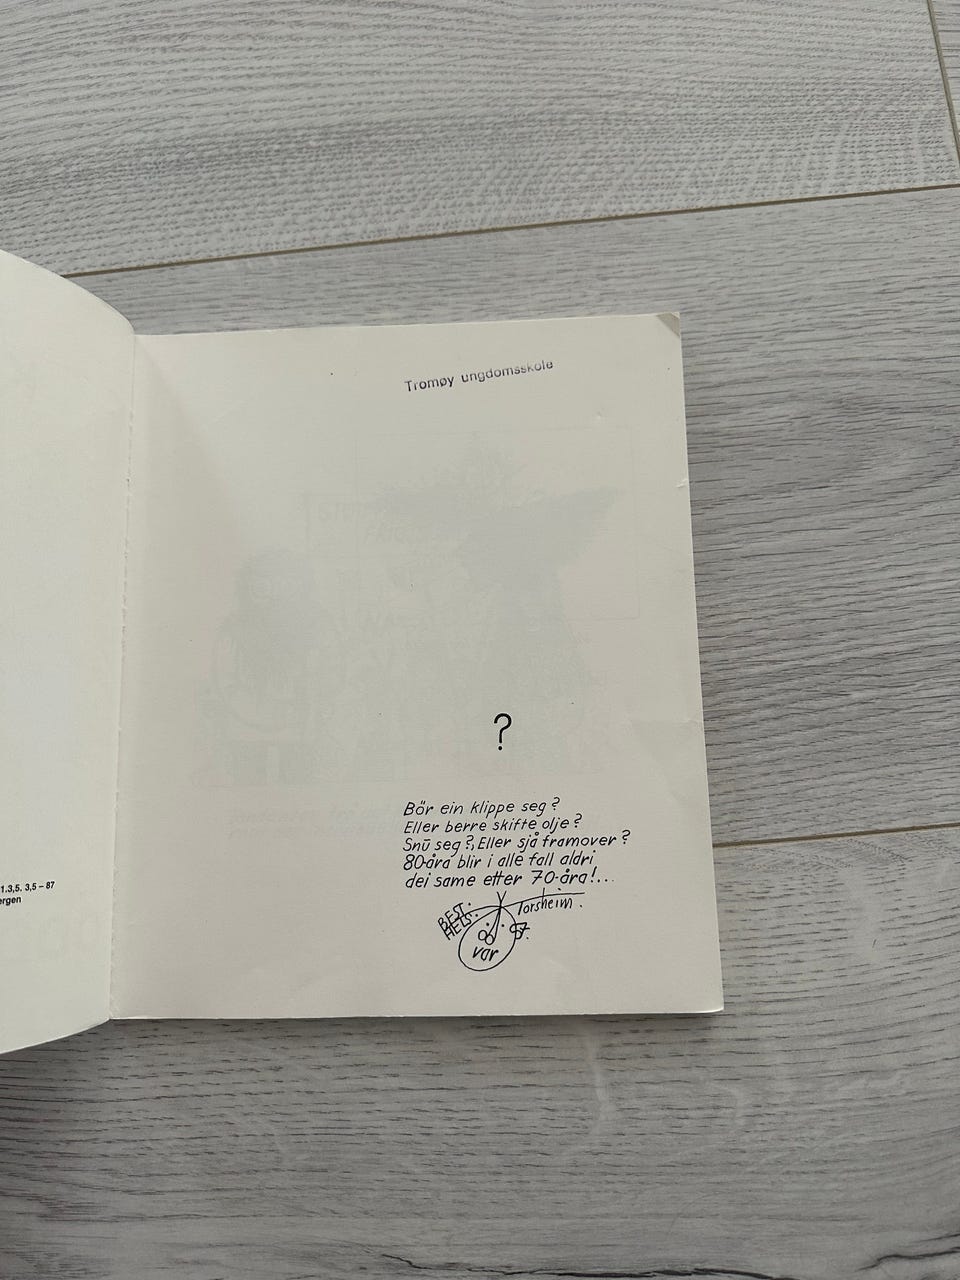 Tromøy ungdomsskole
?
Bör ein klippe seg?
Eller berre skifte olje?
Snū seg?, Eller sjå framover?
80-åra blir i alle fall aldri
dei same etter 70-åra!...
BEST.
HELS.
Torsheim.
87.
var
1.3,5. 3,5 – 87
ergen